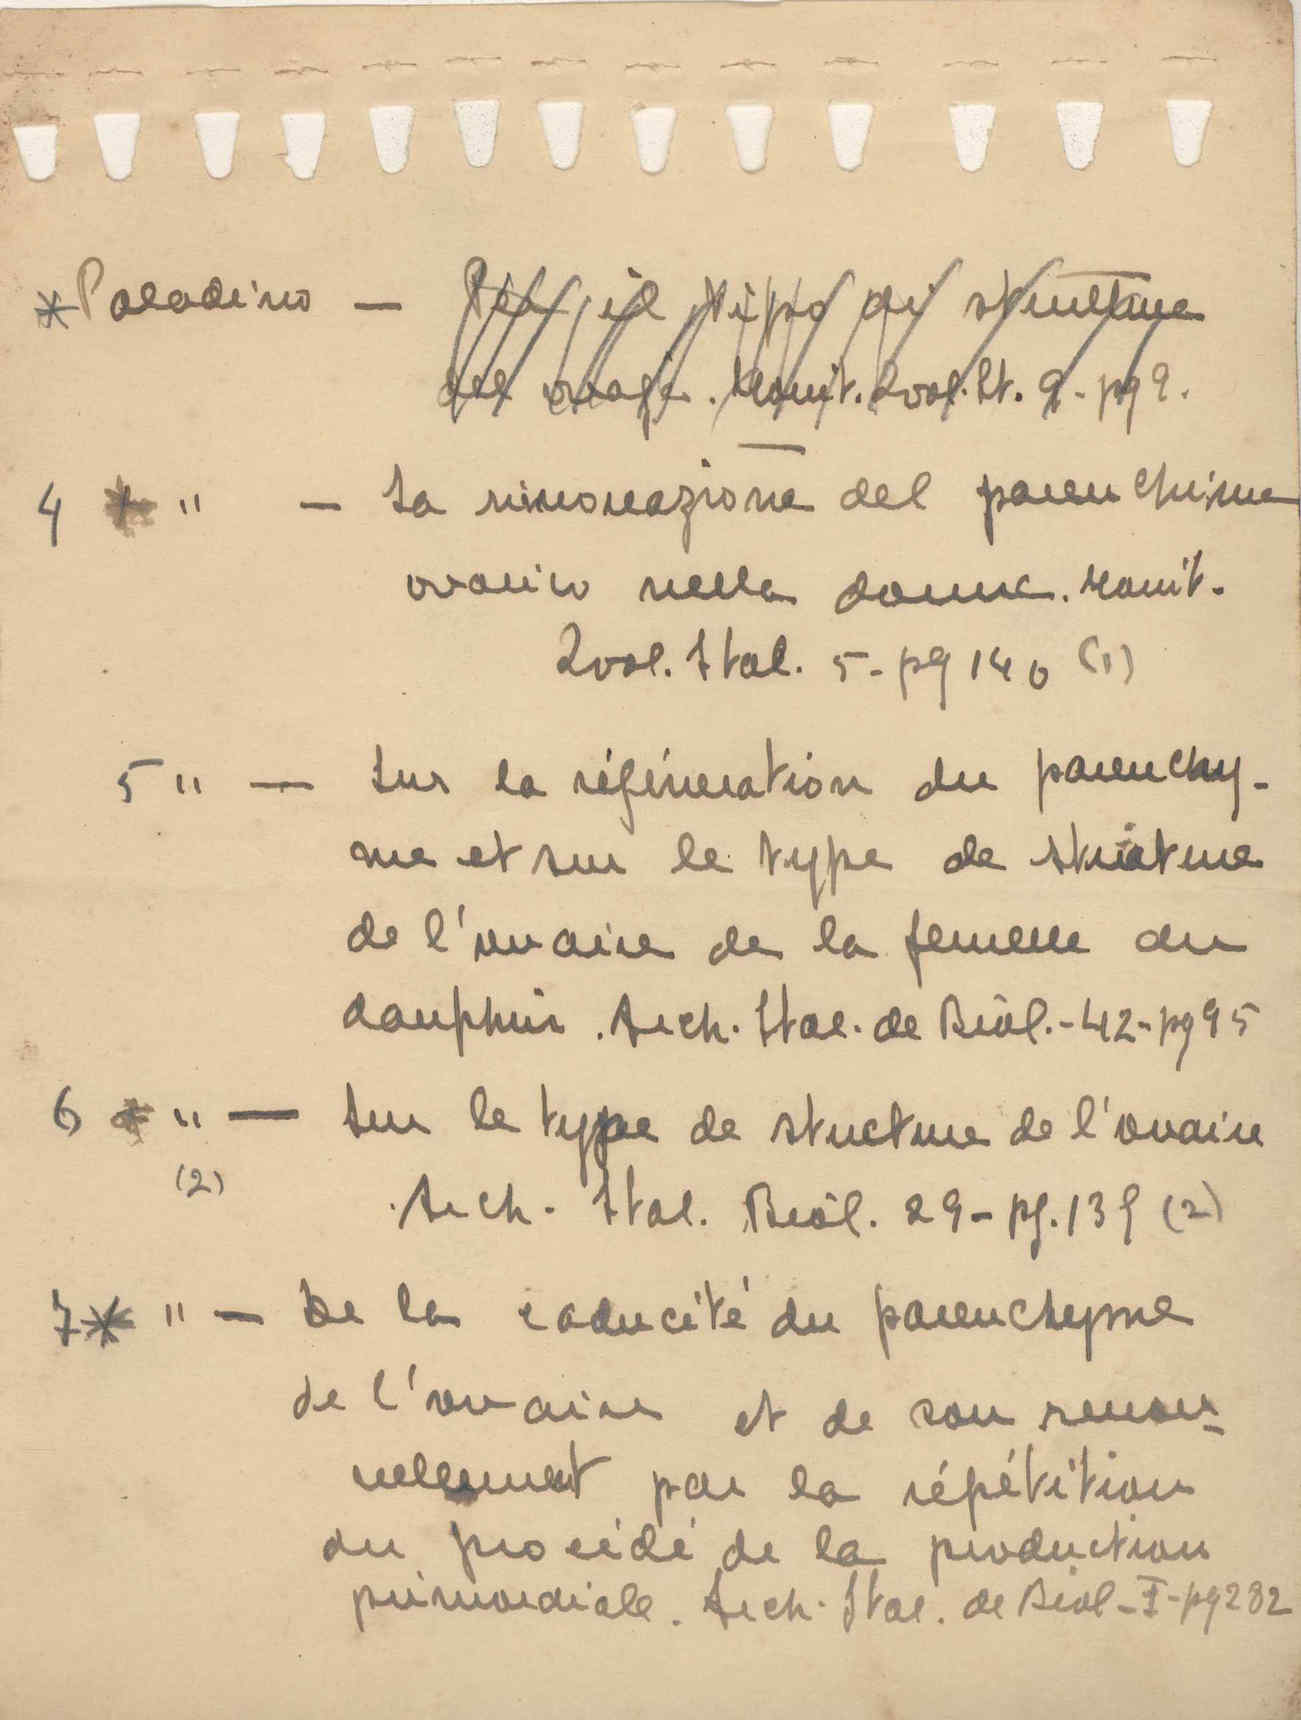 * Paladino — Per il tipo di struttura
dell' ovaja. Monit. Zool. It. 9 - pg 9.
4 * " — La rinnovazione del parenchima
ovarico nella donna. Monit.
Zool. Ital. 5 - pg 140 (1)
5 " — Sur la régéneration du parenchy-
me et sur le type de structure
de l'ovaire de la femelle du
dauphin. Arch. Ital. de Biol. - 42 - pg 95
6 * " — Sur le type de structure de l'ovaire
(2) Arch. Ital. Biol. 29 - pg. 139 (2)
7 * " — De la caducité du parenchyme
de l'ovaire et de son renou-
vellement par la répétition
du procédé de la production
primordiale. Arch. Ital. de Biol - I - pg 232